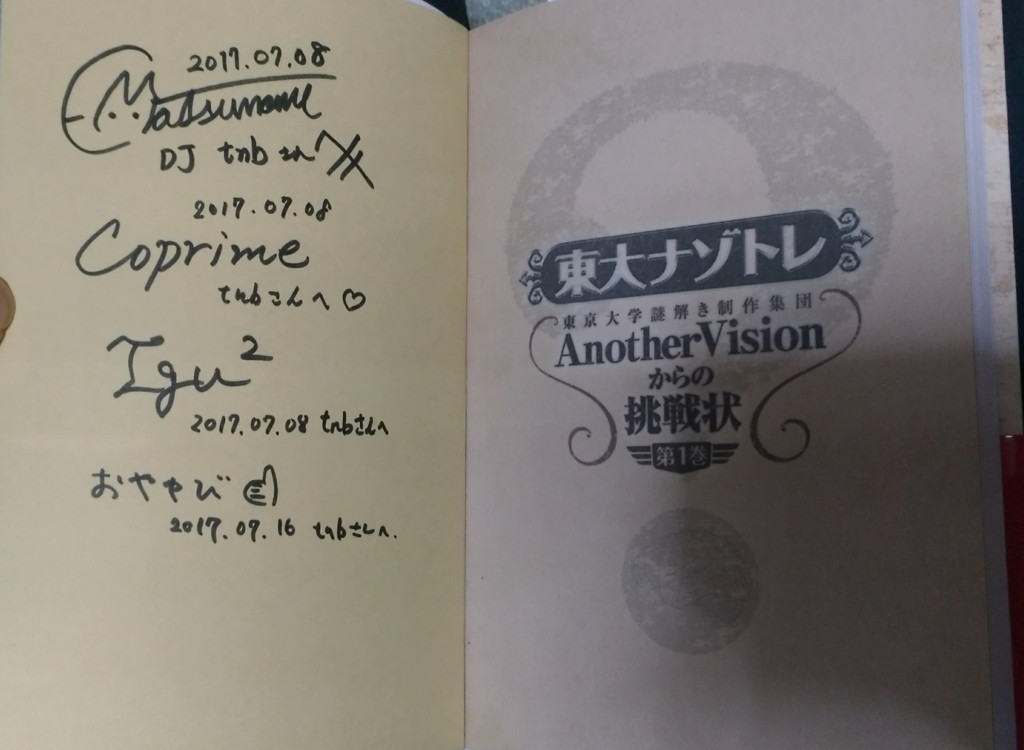 2017.07.08
Matsumame
DJ tnb さんへ
2017.07.08
Coprime
tnbさんへ♡
Igu²
2017.07.08 tnbさんへ
おややび
2017.07.16 tnbさんへ.
東大ナゾトレ
東京大学謎解き制作集団
AnotherVision
からの
挑戦状
第1巻